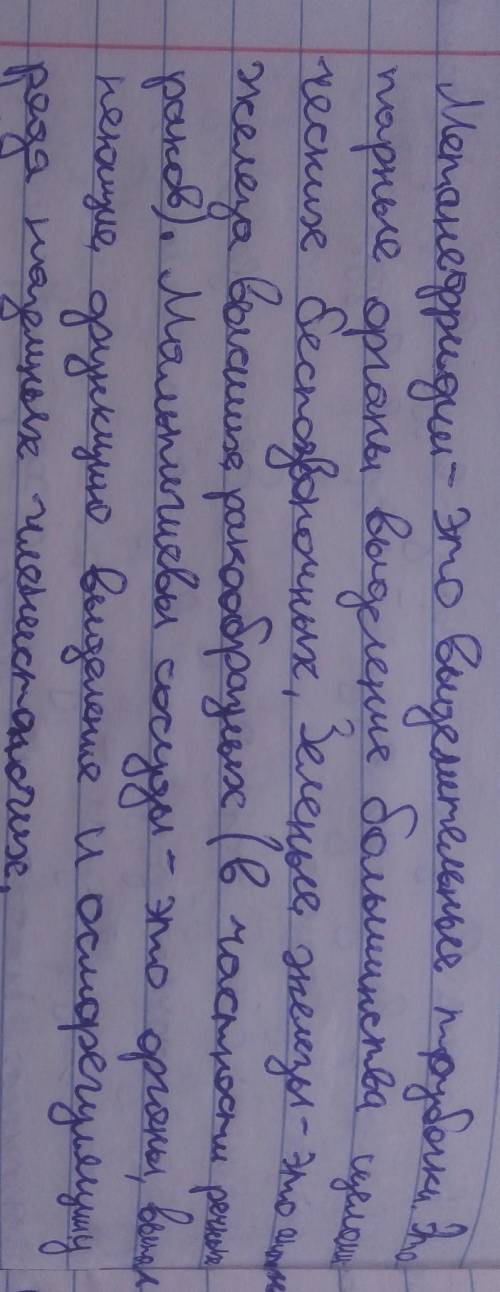 Метанефридии - это выделительные трубочки. Это
парные органы выделение большинства целоми
ческих беспозвоночных, Зеленые железы - это
железа высших ракообразных (в частности речных
раков). Мальпигиевы сосуды - это органы, выпол
няющие функцию выделение и осморегуляцию
ряда наземных членистоногих.